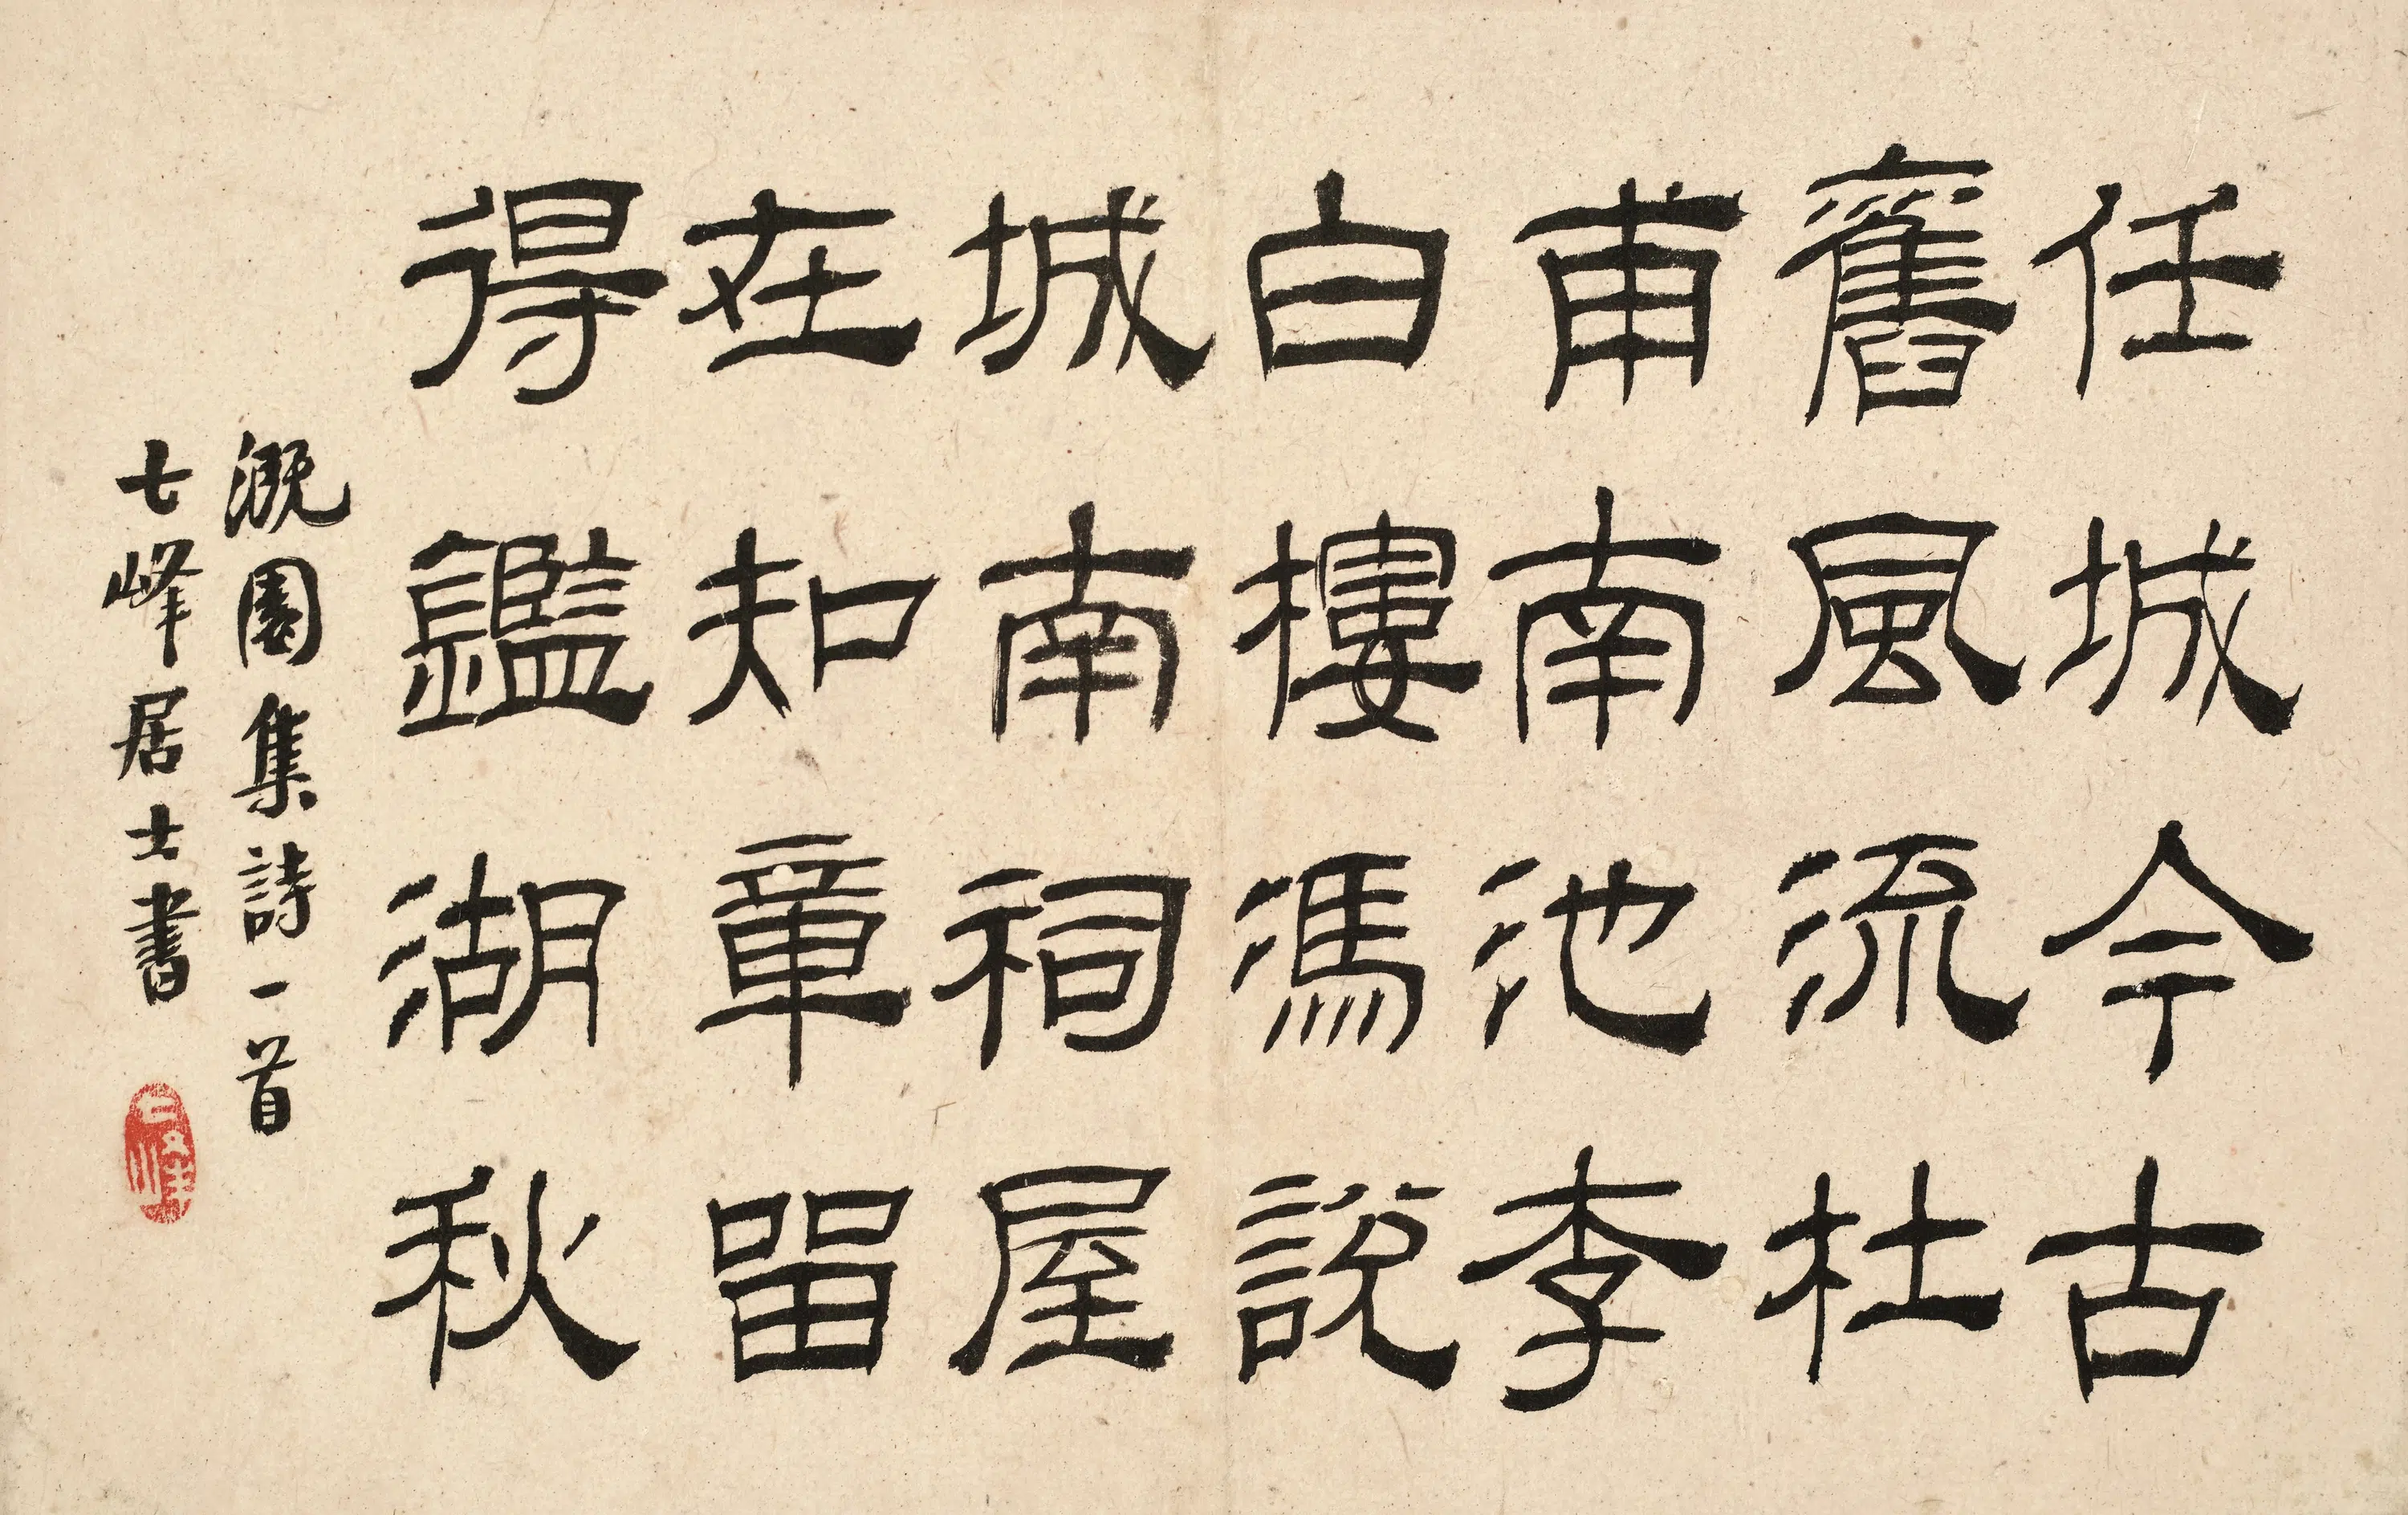 任城今古
舊風流杜
甫南池李
白樓馮說
城南祠屋
在知章留
得鑑湖秋
溉園集詩一首
七峰居士書